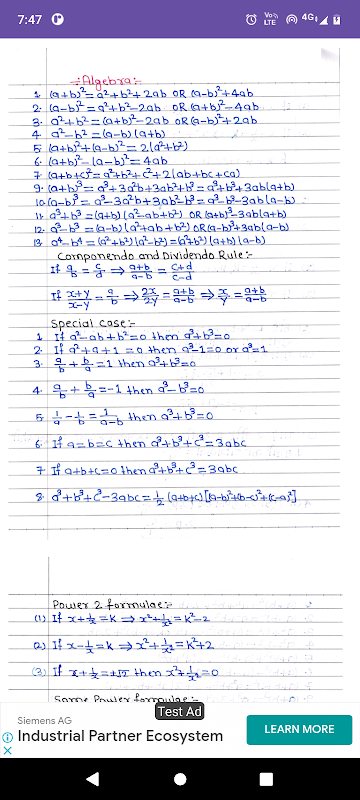 7:47
Vo)) LTE 4G
-:Algebra:-
1. (a+b)²=a²+b²+2ab OR (a-b)²+4ab
2. (a-b)²=a²+b²-2ab OR (a+b)²-4ab
3. a²+b²=(a+b)²-2ab OR (a-b)²+2ab
4 a²-b²=(a-b)(a+b)
5 (a+b)²+(a-b)²=2(a²+b²)
6. (a+b)²-(a-b)²=4ab
7 (a+b+c)²=a²+b²+c²+2(ab+bc+ca)
9. (a+b)³=a³+3a²b+3ab²+b³=a³+b³+3ab(a+b)
10. (a-b)³=a³-3a²b+3ab²-b³=a³-b³-3ab(a-b)
11. a³+b³=(a+b)(a²-ab+b²) OR (a+b)³-3ab(a+b)
12. a³-b³=(a-b)(a²+ab+b²) OR (a-b)³+3ab(a-b)
13 a⁴-b⁴=(a²+b²)(a²-b²)=(a²+b²)(a+b)(a-b)
Componendo and Dividendo Rule:-
If a/b=c/d⇒a+b/a-b=c+d/c-d
If x+y/x-y=a/b⇒2x/2y=a+b/a-b⇒x/y=a+b/a-b
Special case:-
1 If a²-ab+b²=0 then a³+b³=0
2. If a²+a+1=0 then a³-1=0 or a³=1
3. a/b+b/a=1 then a³+b³=0
4 a/b+b/a=-1 then a³-b³=0
5 1/a-1/b=1/a-b then a³+b³=0
6. If a=b=c then a³+b³+c³=3abc
7 If a+b+c=0 then a³+b³+c³=3abc
8. a³+b³+c³-3abc=1/2(a+b+c)[(a-b)²+(b-c)²+(c-a)²]
Power 2 formulae:-
(1) If x+1/x=k⇒x²+1/x²=k²-2
(2) If x-1/x=k⇒x²+1/x²=k²+2
(3) If x+1/x=±√2 then x²+1/x²=0
Some Power formulae:-
Test Ad
Siemens AG
Industrial Partner Ecosystem
LEARN MORE